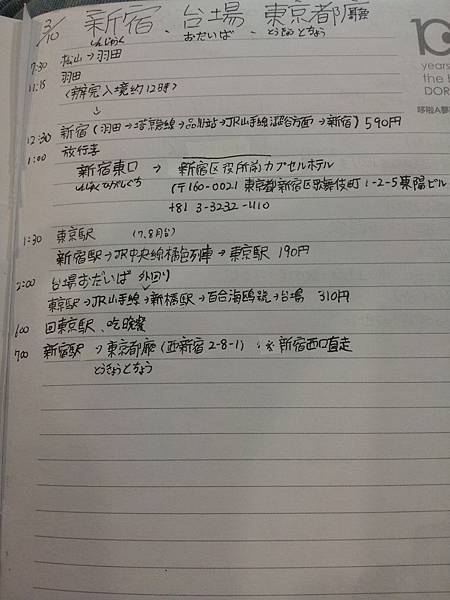 3/10 新宿、台場、東京都廳
しんじゅく おだいば とうきょうとちょう
7:30 松山→羽田
11:15 羽田
(辦完入境約12時)
↓
12:30 新宿(羽田→京急線→品川站→JR山手線澀谷方面→新宿) 590円
1:00 放行李
新宿東口 → 新宿区役所前カプセルホテル
しんじゅくひがしぐち (〒160-0021 東京都新宿区歌舞伎町1-2-5東陽ビル
+81 3-3232-1110
1:30 東京駅 (7.8月台)
新宿駅→JR中央線橘色列車→東京駅 190円
2:00 台場おだいば 外回り
東京駅→JR山手線→新橋駅→百合海鷗號→台場 310円
6:00 回東京駅、吃晚餐
7:00 新宿駅 →東京都廳(西新宿2-8-1) ※新宿西口直走
とうきょうとちょう
10
years
the b
DOR
哆啦A夢